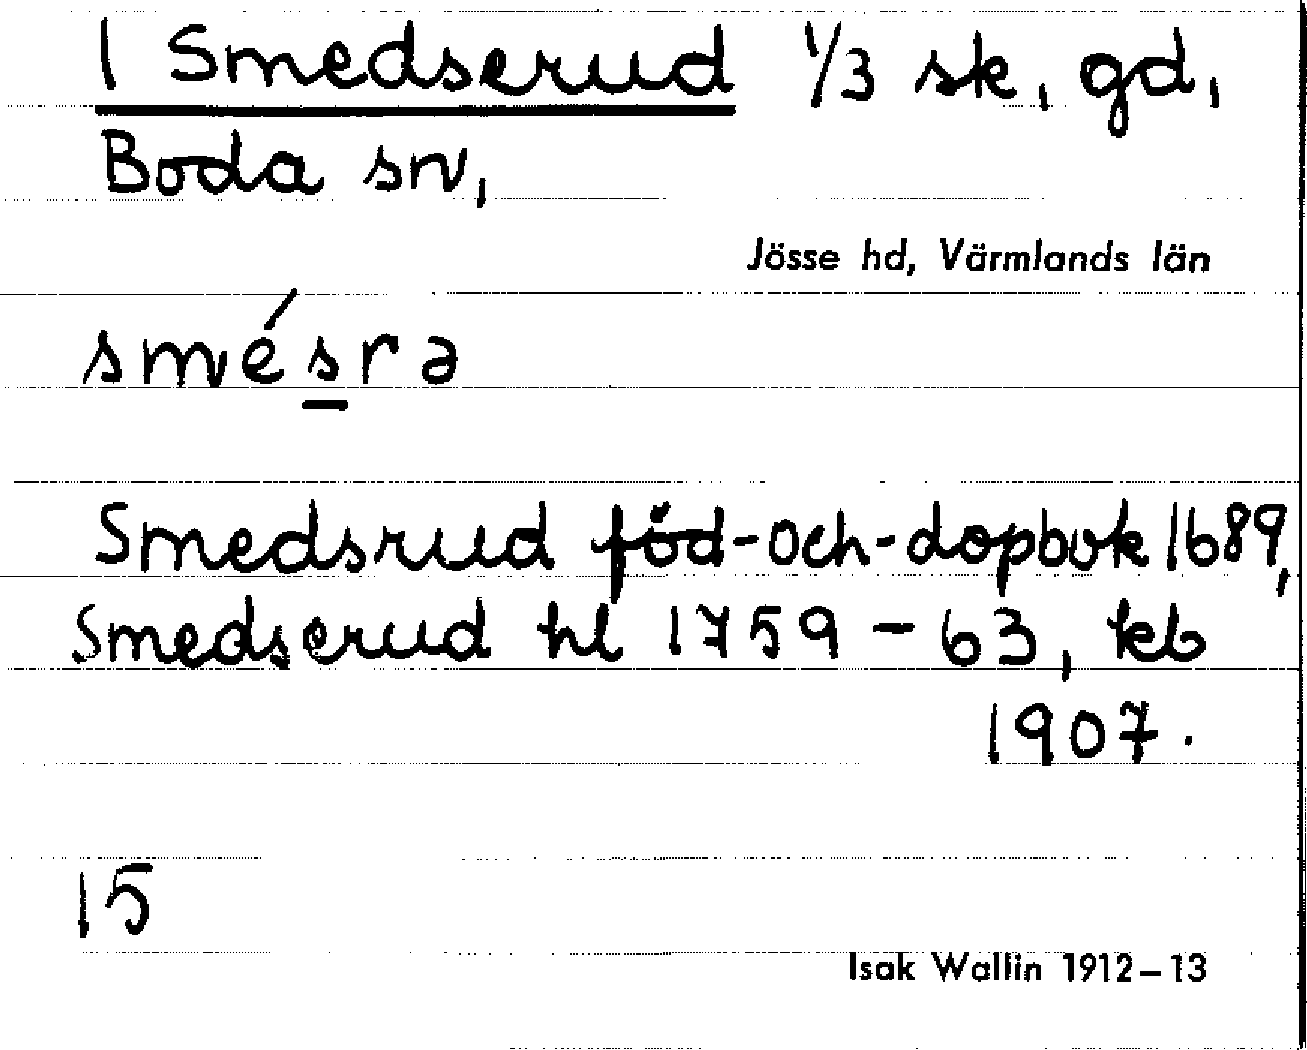 1 Smedserud 1/3 sk, gd,
Boda sn,
Jösse hd, Värmlands län
smésrə
Smedsrud föd-och-dopbok 1689,
Smedserud hl 1759-63, kb
1907.
15
Isak Wallin 1912-13